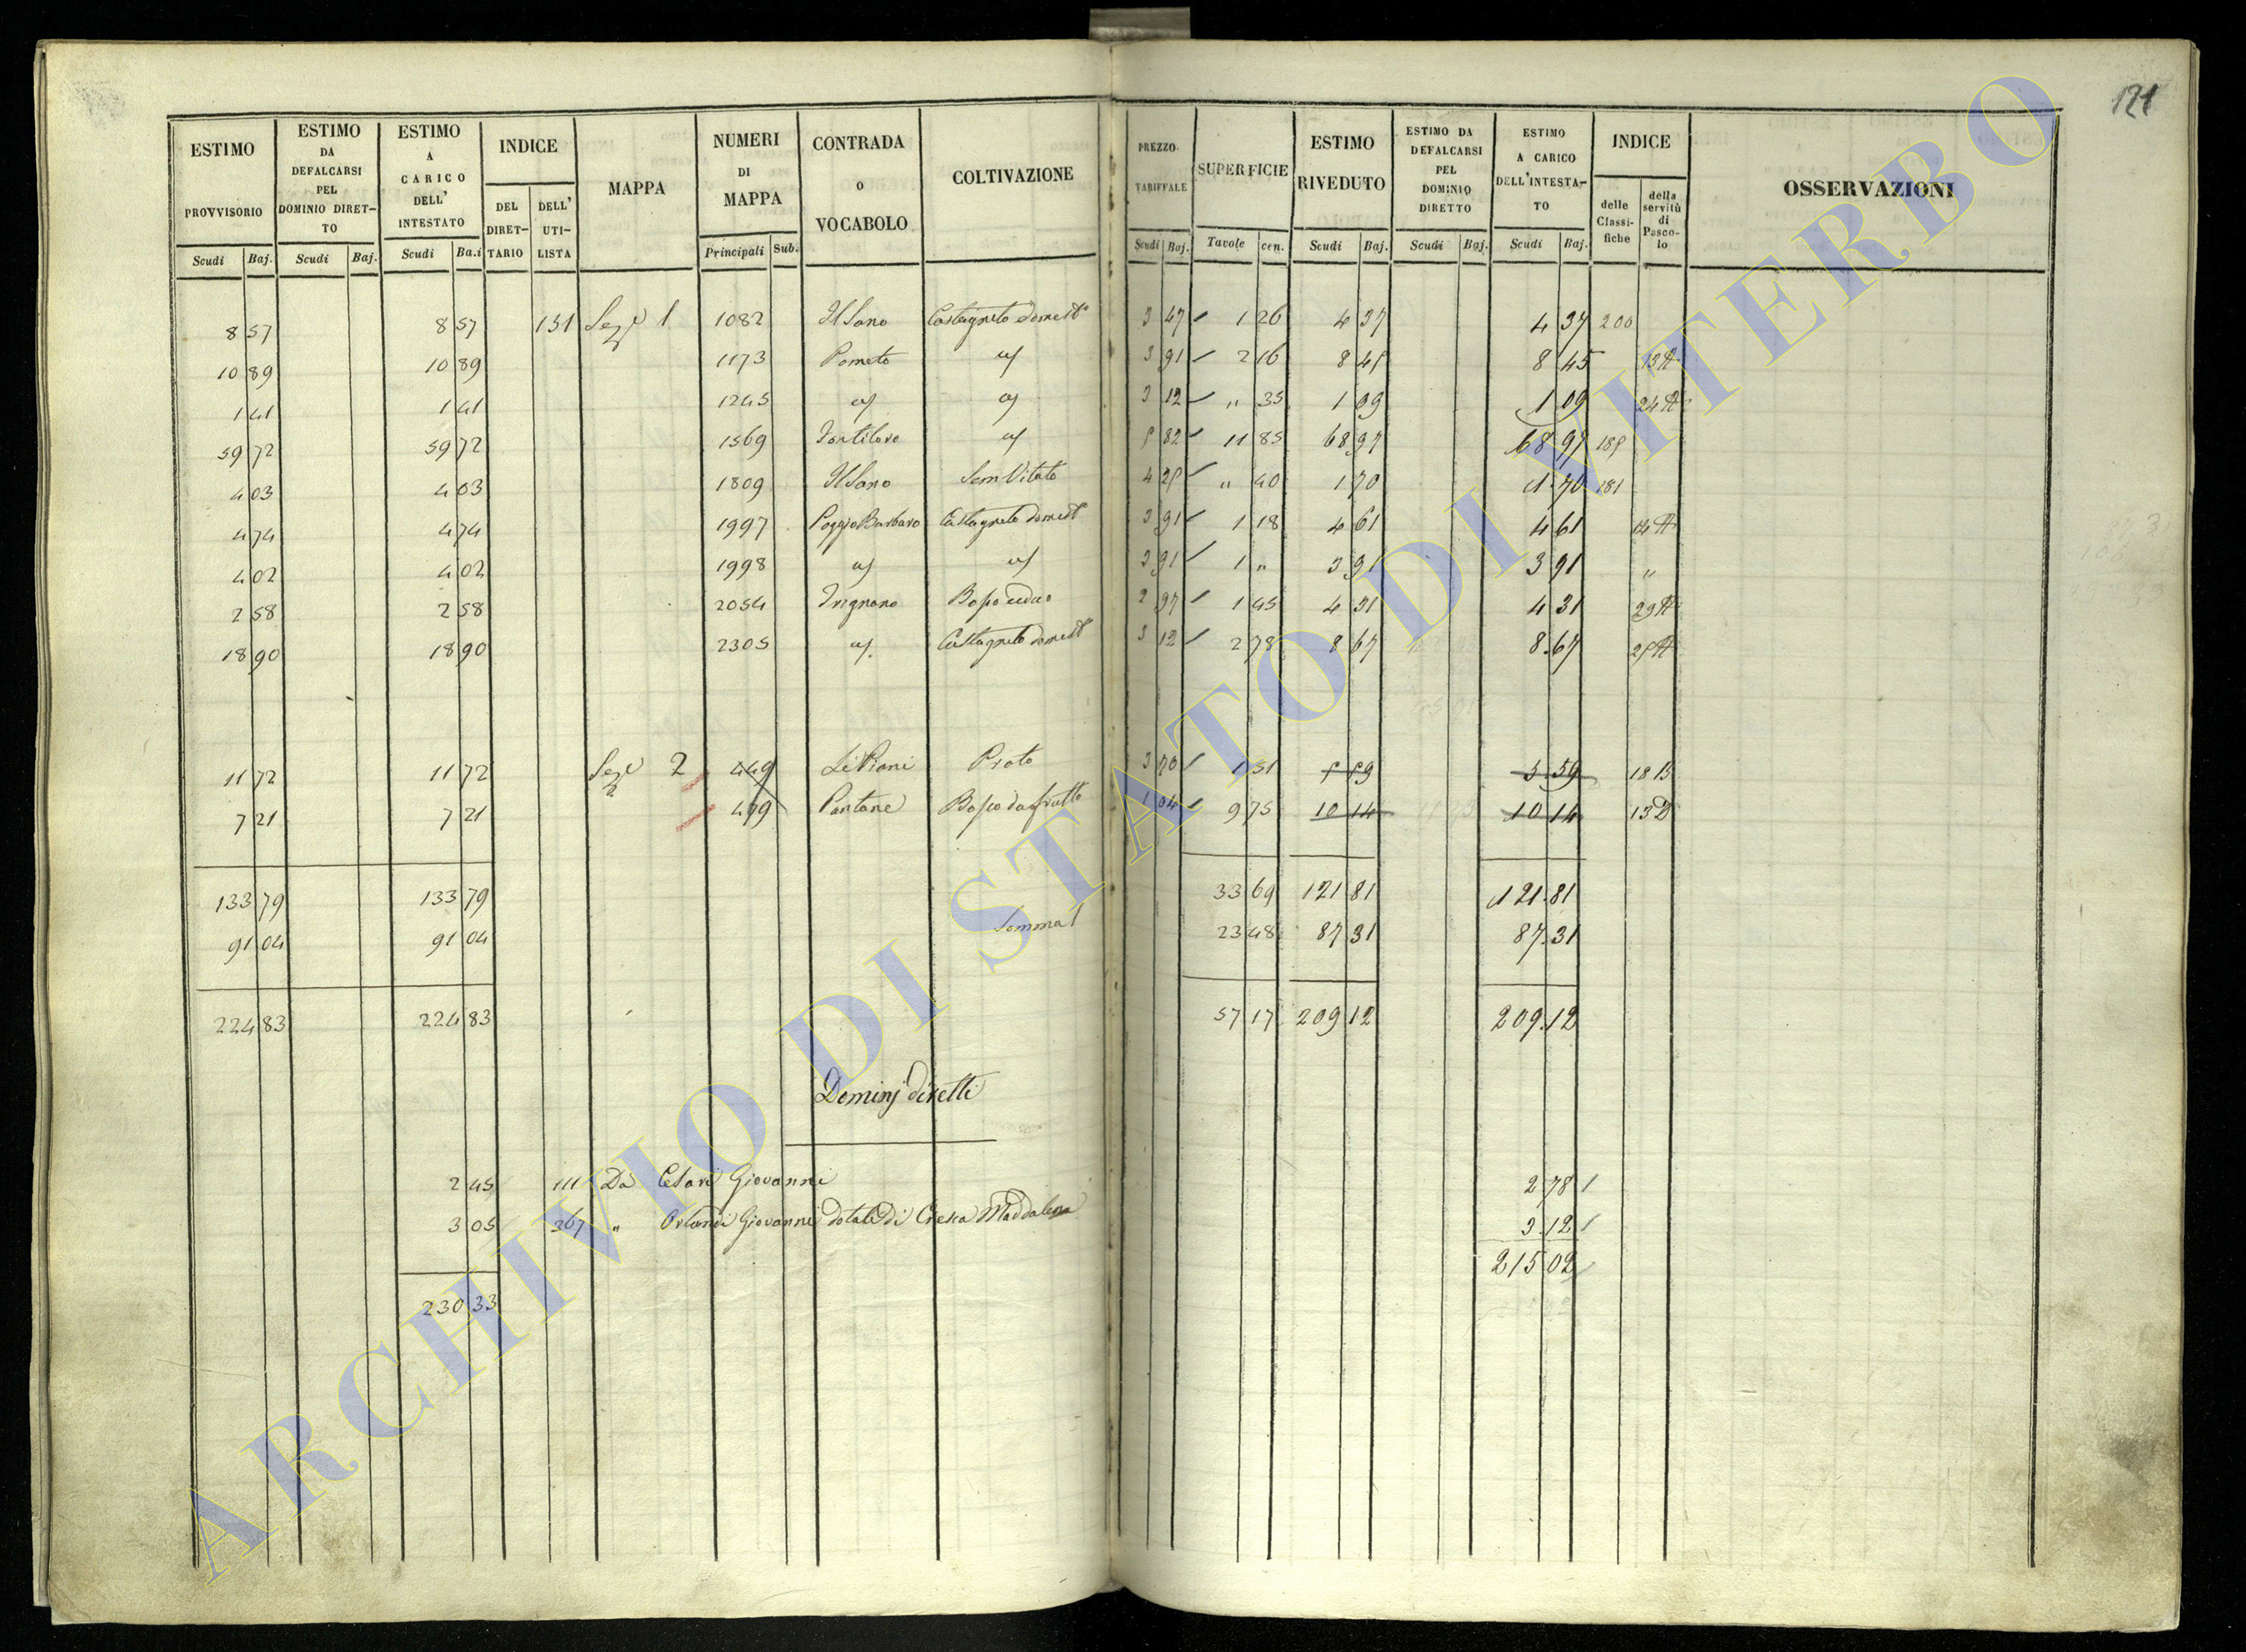 121
ESTIMO PROVVISORIO | ESTIMO DA DEFALCARSI PEL DOMINIO DIRET-TO | ESTIMO A CARICO DELL' INTESTATO | INDICE | MAPPA | NUMERI DI MAPPA | CONTRADA O VOCABOLO | COLTIVAZIONE | PREZZO TARIFFALE | SUPERFICIE | ESTIMO RIVEDUTO | ESTIMO DA DEFALCARSI PEL DOMINIO DIRETTO | ESTIMO A CARICO DELL'INTESTA-TO | INDICE | OSSERVAZIONI
DEL DIRET-TARIO | DELL' UTI-LISTA | delle Classi-fiche | della servitù di Pasco-lo
Scudi | Baj. | Scudi | Baj. | Scudi | Ba.i | Principali | Sub. | Scudi | Baj. | Tavole | cen. | Scudi | Baj. | Scudi | Baj. | Scudi | Baj.
8 57 | 8 57 | 131 | Sez.e 1 | 1082 | Il Sano | Castagneto domest.o | 3 47 | 1 26 | 4 37 | 4 37 | 200
10 89 | 10 89 | 1173 | Pometo | " | 3 91 | 2 16 | 8 45 | 8 45 | 13 A
1 41 | 1 41 | 1245 | " | " | 3 12 | " 35 | 1 09 | 1 09 | 24 A
59 72 | 59 72 | 1569 | " | 5 82 | 11 85 | 68 97 | 68 97 | 185
4 03 | 4 03 | 1809 | Il Sano | Sem Vitato | 4 25 | " 40 | 1 70 | 1 70 | 181
4 74 | 4 74 | 1997 | Poggio Barbaro | Castagneto domest.o | 3 91 | 1 18 | 4 61 | 4 61 | 14 A
4 02 | 4 02 | 1998 | " | " | 3 91 | 1 " | 3 91 | 3 91 | "
2 58 | 2 58 | 2054 | Trignano | Bosco ceduo | 2 97 | 1 45 | 4 31 | 4 31 | 29 A
18 90 | 18 90 | 2305 | " | Castagneto domest.o | 3 12 | 2 78 | 8 67 | 8.67 | 25 A
11 72 | 11 72 | Sez.e 2 | 449 | Li Piani | Prato | 3 70 | 1 51 | 5 59 | 5 59 | 18 B
7 21 | 7 21 | 479 | Pantane | Bosco da frutto | 1 04 | 9 75 | 10 14 | 10 14 | 13 D
133 79 | 133 79 | 33 69 | 121 81 | 121.81
91 04 | 91 04 | Somma 1 | 23 48 | 87 31 | 87.31
224 83 | 224 83 | 57 17 | 209 12 | 209.12
Dominj diretti
2 45 | 111 | Da Cesari Giovanni | 2 78
3 05 | 267 | " Orlandi Giovanni dotale di Cresca Maddalena | 3.12
215 02
230 33
ARCHIVIO DI STATO DI VITERBO